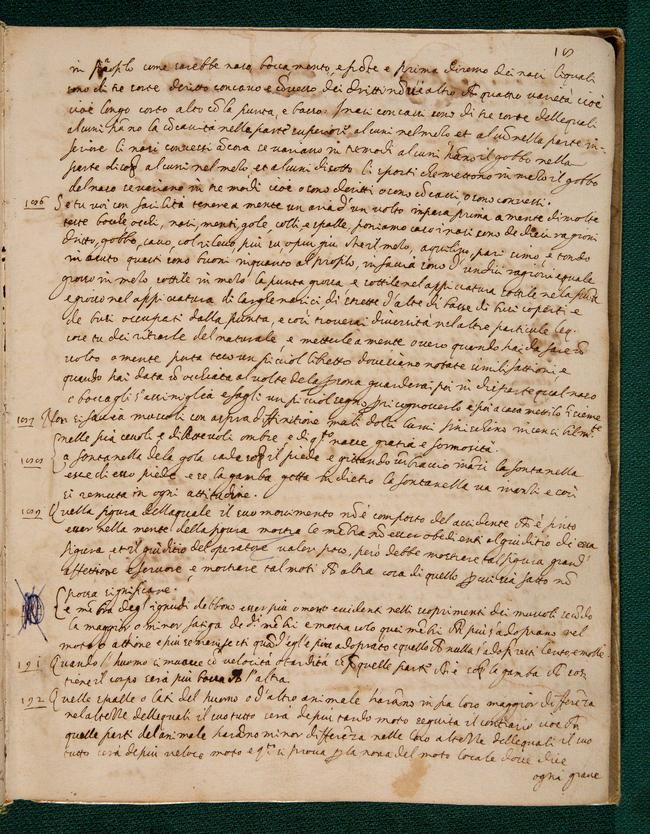 in profilo come sarebbe naso, bocca, mento, e fronte e prima diremo dei nasi li quali
sono di tre sorte deritto concavo e convesso dei dritti non v'è altro che quattro varietà cioè
cioè longo corto alto con la punta, e basso. I nasi concavi sono di tre sorte dellequali
alcuni hanno la concavità nella parte superiore alcuni nel mezo et alcuni nella parte in-
feriore li nasi convessi ancora se variano in tre modi alcuni hanno il gobbo nella
parte di sopra alcuni nel mezo, et alcuni di sotto li sporti che mettono in mezo il gobbo
del naso se variano in tre modi cioè o sono deritti o sono concavi, o sono convessi.
186 Se tu voi con facilità tenere a mente un aria d'un volto impara prima a mente di molte
teste bocche occhi, nasi, menti, gole, colli e spalle, poniamo caso i nasi sono de dieci ragioni
dritto, gobbo, cavo, col rilevo più su o più giù che il mezo, aquilino, pari simo, e tondo
in acuto questi sono buoni in quanto al profilo, in faccia sono d'undici ragioni equale
grosso in mezo sottile in mezo la punta grossa e sottile nel appiccatura sottile nela punta
e grosso nel appiccatura di larghe narici di strette d'alte di basse di busi scoperti e
de busi occupati dalla punta, e così troverai diversità nel altre particule le q.
cose tu dei ritrarle del naturale e metterle a mente overo quando hai da fare un
volto a mente porta teco un picciol libretto dove siano notate simili fattioni, e
quando hai data un occhiata al volto de la persona guarderai poi in disparte qual naso
o bocca gli s'assimiglia e fagli un picciol segno per ricognoscerlo e poi a casa mettilo insieme
187 Non si faccia muscoli con aspra diffinitione mali dolci lumi finischino insensibilmte
nelle piacevoli e dilettevoli ombre e di qto nasce gratia e formosità.
188 La fontanella de la gola cade sopra il piede e gittando un braccio inanzi la fontanella
esce di esso piede, e se la gamba getta in dietro la fontanella va inanti e così
si remuta in ogni attitudine.
189 Quella figura della quale il suo movimento non è composto del accidente che è finto
esser nella mente della figura mostra le membra non esser obedienti al giuditio di essa
figura, et il giuditio del operatore valer poco, però debbe mostrare tal figura grand'
affettione e fervore e mostrare tal moti che altra cosa di quello per cui sia fatto non
possa significare.
Le membra degl'ignudi debbono esser più o meno evidenti nelli scoprimenti dei muscoli secondo
la maggior o minor fatiga de detti membri e mostra solo quei membri che più s'adoprano nel
moto o attione e più se manifesti quel ch'egli è più adoprato e quello che nulla s'adopri resti lento e molle
191 Quando l'huomo si muove con velocità o tardità sempre quelle parti che è sopra la gamba che sos-
tiene il corpo serà più bassa che l'altra.
192 Quelle spalle o lati del huomo o d'altro animale haranno infra loro maggior differenza
nel altezze dellequali il suo tutto serà de più tardo moto seguita il contrario cioè che
quelle parti del animale haranno minor differenza nelle loro altezze dellequali il suo
tutto serà de più veloce moto e questo si prova per la nona del moto locale dove dice
ogni grave